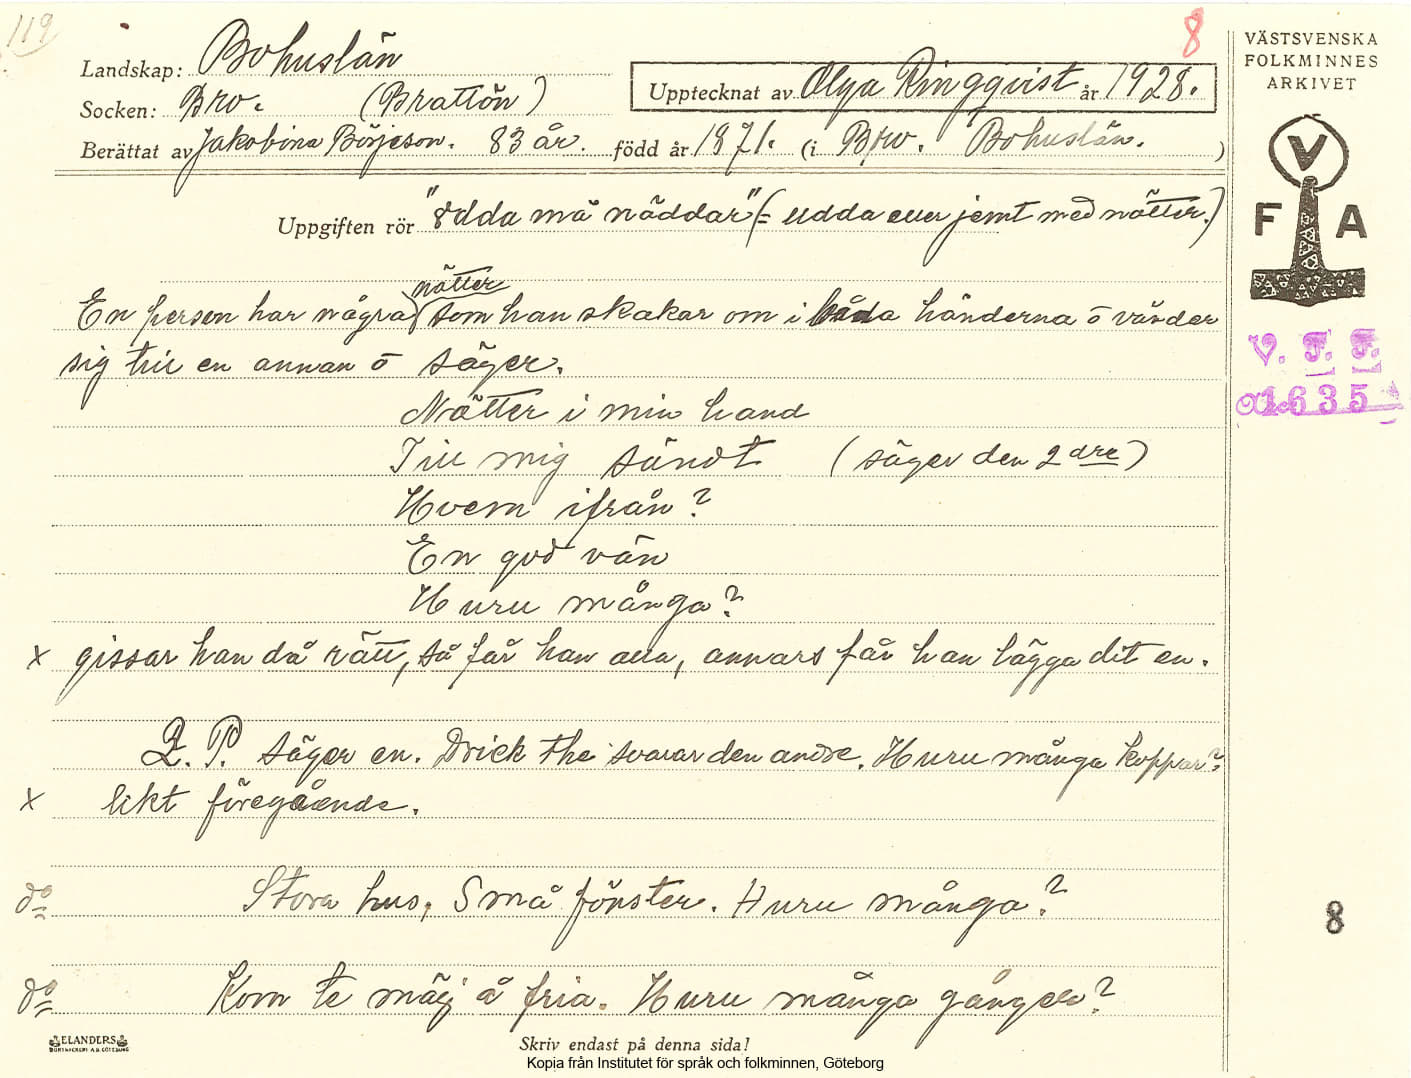 119
8
Landskap: Bohuslän
Socken: Bro. (Brattön)
Upptecknat av Olga Ringqvist år 1928.
Berättat av Jakobina Börjeson. 83 år. född år 1871. (i Bro. Bohuslän.)
Uppgiften rör "ödda må näddar" (= udda eller jemt med nötter.)
nötter
En person har några som han skakar om i båda händerna o vänder
sig till en annan o säger.
Nötter i min hand
Till mig sändt (säger den 2 dre)
Hvem ifrån?
En god vän
Huru många?
x gissar han då rätt, så får han alla, annars får han lägga dit en.
D. P. säger en. Drick the svarar den andre. Huru många koppar?
x likt föregående.
do Stora hus, Små fönster. Huru många?
do Kom te mäj å fria. Huru många gånger?
ELANDERS
BOKTRYCKERI A.B. GÖTEBORG
Skriv endast på denna sida!
Kopia från Institutet för språk och folkminnen, Göteborg
VÄSTSVENSKA
FOLKMINNES
ARKIVET
V
F A
V. F. F.
1635
8